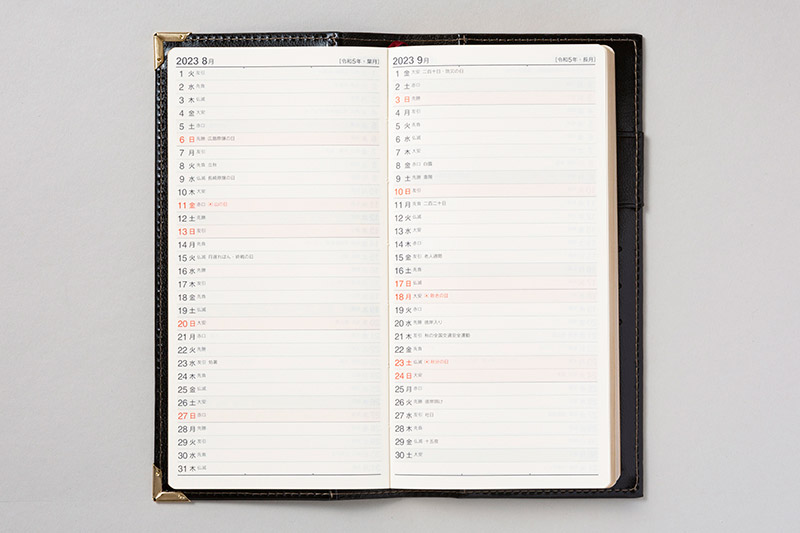 2023 8月 [令和5年・葉月]
1 火 友引
2 水 先負
3 木 仏滅
4 金 大安
5 土 赤口
6 日 先勝 広島原爆の日
7 月 友引
8 火 先負 立秋
9 水 仏滅 長崎原爆の日
10 木 大安
11 金 赤口 ㊗山の日
12 土 先勝
13 日 友引
14 月 先負
15 火 仏滅 月遅れぼん・終戦の日
16 水 先勝
17 木 友引
18 金 先負
19 土 仏滅
20 日 大安
21 月 赤口
22 火 先勝
23 水 友引 処暑
24 木 先負
25 金 仏滅
26 土 大安
27 日 赤口
28 月 先勝
29 火 友引
30 水 先負
31 木 仏滅
2023 9月 [令和5年・長月]
1 金 大安 二百十日・防災の日
2 土 赤口
3 日 先勝
4 月 友引
5 火 先負
6 水 仏滅
7 木 大安
8 金 赤口 白露
9 土 先勝 重陽
10 日 友引
11 月 先負 二百二十日
12 火 仏滅
13 水 大安
14 木 赤口
15 金 友引 老人週間
16 土 先負
17 日 仏滅
18 月 大安 ㊗敬老の日
19 火 赤口
20 水 先勝 彼岸入り
21 木 友引 秋の全国交通安全運動
22 金 先負
23 土 仏滅 ㊗秋分の日
24 日 大安
25 月 赤口
26 火 先勝 彼岸明け
27 水 友引 社日
28 木 先負
29 金 仏滅 十五夜
30 土 大安